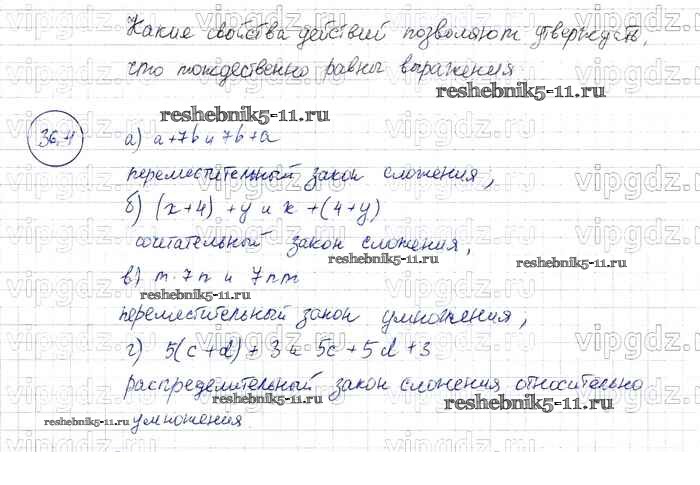 Какие свойства действий позволяют утверждать,
что тождественно равны выражения
reshebnik5-11.ru
reshebnik5-11.ru
36.4
а) a+7b и 7b+a
переместительный закон сложения;
б) (x+4)+y и x+(4+y)
сочетательный закон сложения,
reshebnik5-11.ru
reshebnik5-11.ru
в) m·7n и 7nm
reshebnik5-11.ru
переместительный закон умножения,
г) 5(c+d)+3 и 5c+5d+3
распределительный закон сложения относительно
reshebnik5-11.ru
reshebnik5-11.ru
умножения
vipgdz.ru